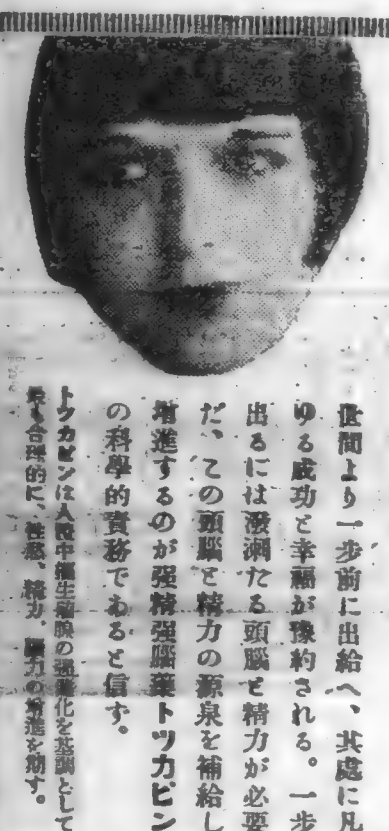 世間より一步前に出給へ、其處に凡
ゆる成功と幸福が豫約される。一步
出るには潑溂たる頭腦と精力が必要
だ、この頭腦と精力の源泉を補給し
增進するのが强精强腦藥トツカピン
の科學的責務であると信ず。
トツカピンは人體中樞生殖腺の强健化を基調として
最も合理的に、性慾、精力、腦力の增進を期す。